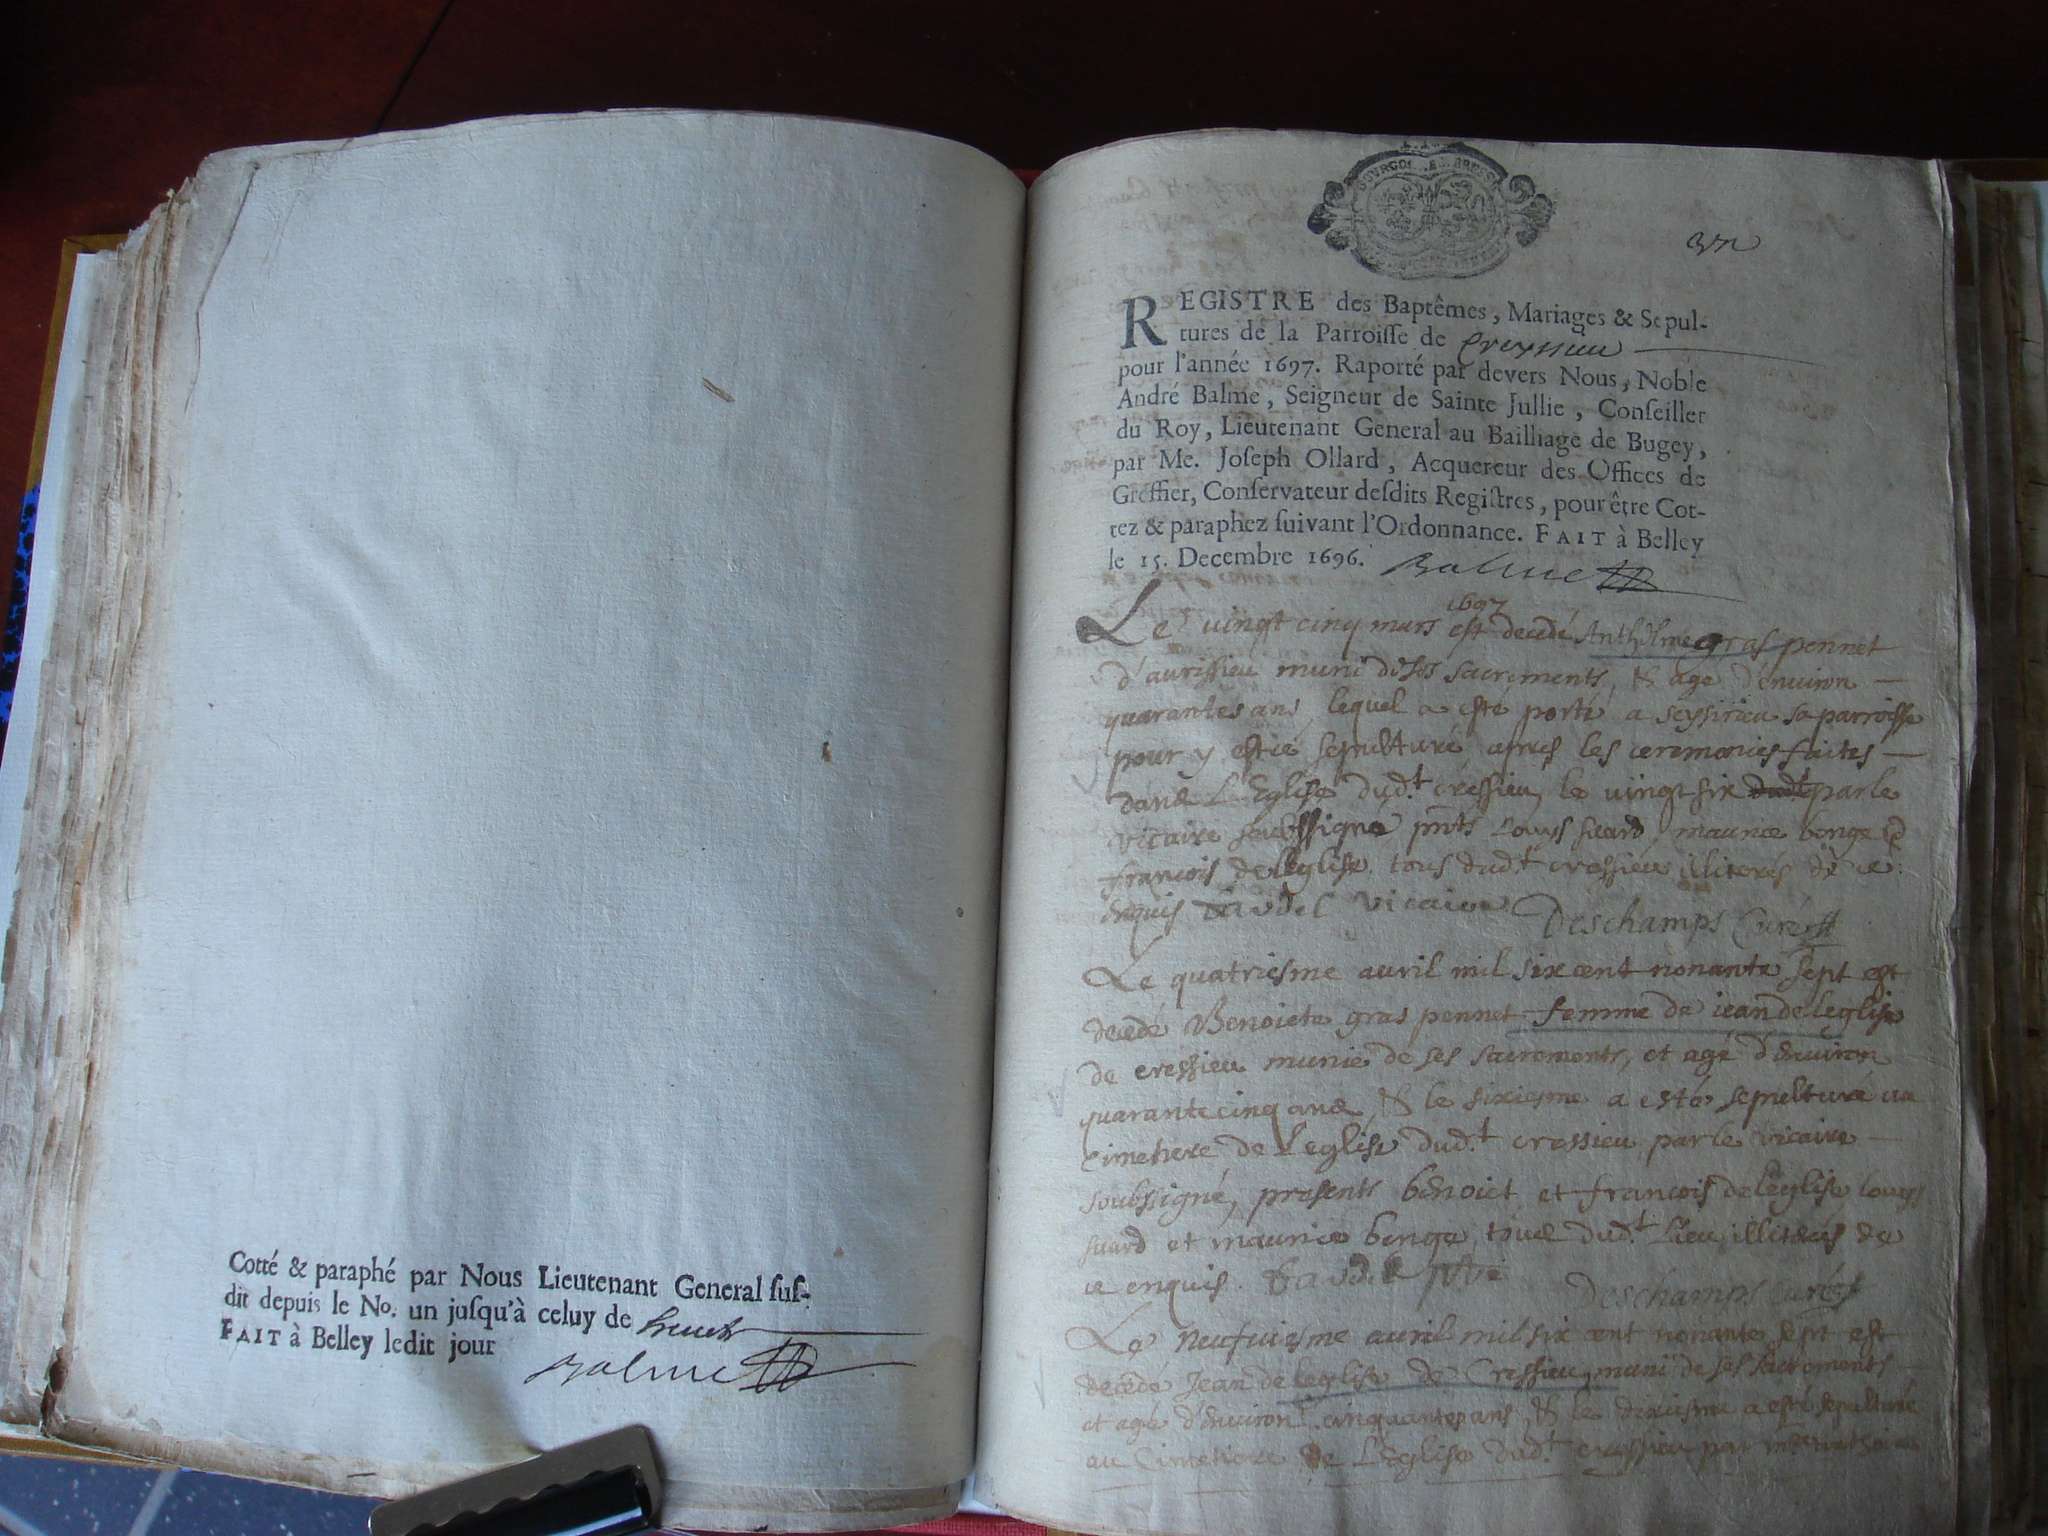 Cotté & paraphé par Nous Lieutenant General ſuſ-
dit depuis le No. un juſqu'à celuy de
FAIT à Belley ledit jour
Balme
REGISTRE des Baptêmes, Mariages & Sepul-
tures de la Parroiſſe de Creyssieu
pour l'année 1697. Raporté par devers Nous, Noble
André Balme, Seigneur de Sainte Jullie, Conſeiller
du Roy, Lieutenant General au Bailliage de Bugey,
par Me. Joſeph Ollard, Acquereur des Offices de
Greffier, Conſervateur deſdits Regiſtres, pour être Cot-
tez & paraphez ſuivant l'Ordonnance. FAIT à Belley
le 15. Decembre 1696. Balme
1697
Le vingt cinq mars est decedé Anthelme gras pennet
d'aurissieu muni de ses sacrements, & age d'environ
quarantes ans lequel a esté porté a seyssirieu sa parroisse
pour y estre sepulturé apres les ceremonies faites
dans L'Eglise dud.t cressieu, le vingt six par le
vicaire soubssigné pnts Louys suard, maurice benge &
francois de leglise tous dud.t cressieu illiterés de ce
enquis vicaire Deschamps Curé
Le quatriesme avril mil six cent nonante sept est
decedé Benoiete gras pennet femme de jean deleglise
de cressieu munie de ses sacrements, et agé d'environ
quarante cinq ans, & le sixiesme a esté sepulturé au
Cimetiere de l'eglise dud.t cressieu par le vicaire
soubssigné, presents benoict et francois de leglise louys
suard et maurice benge, tous dud.t lieu illiterés de
ce enquis Deschamps curé
Le neufviesme avril mil six cent nonante sept est
decedé Jean de leglise de Cressieu, muni de ses sacrements
et agé d'environ cinquante ans, & le dixiesme a esté sepulturé
au Cimetiere de L'Eglise dud.t cressieu par